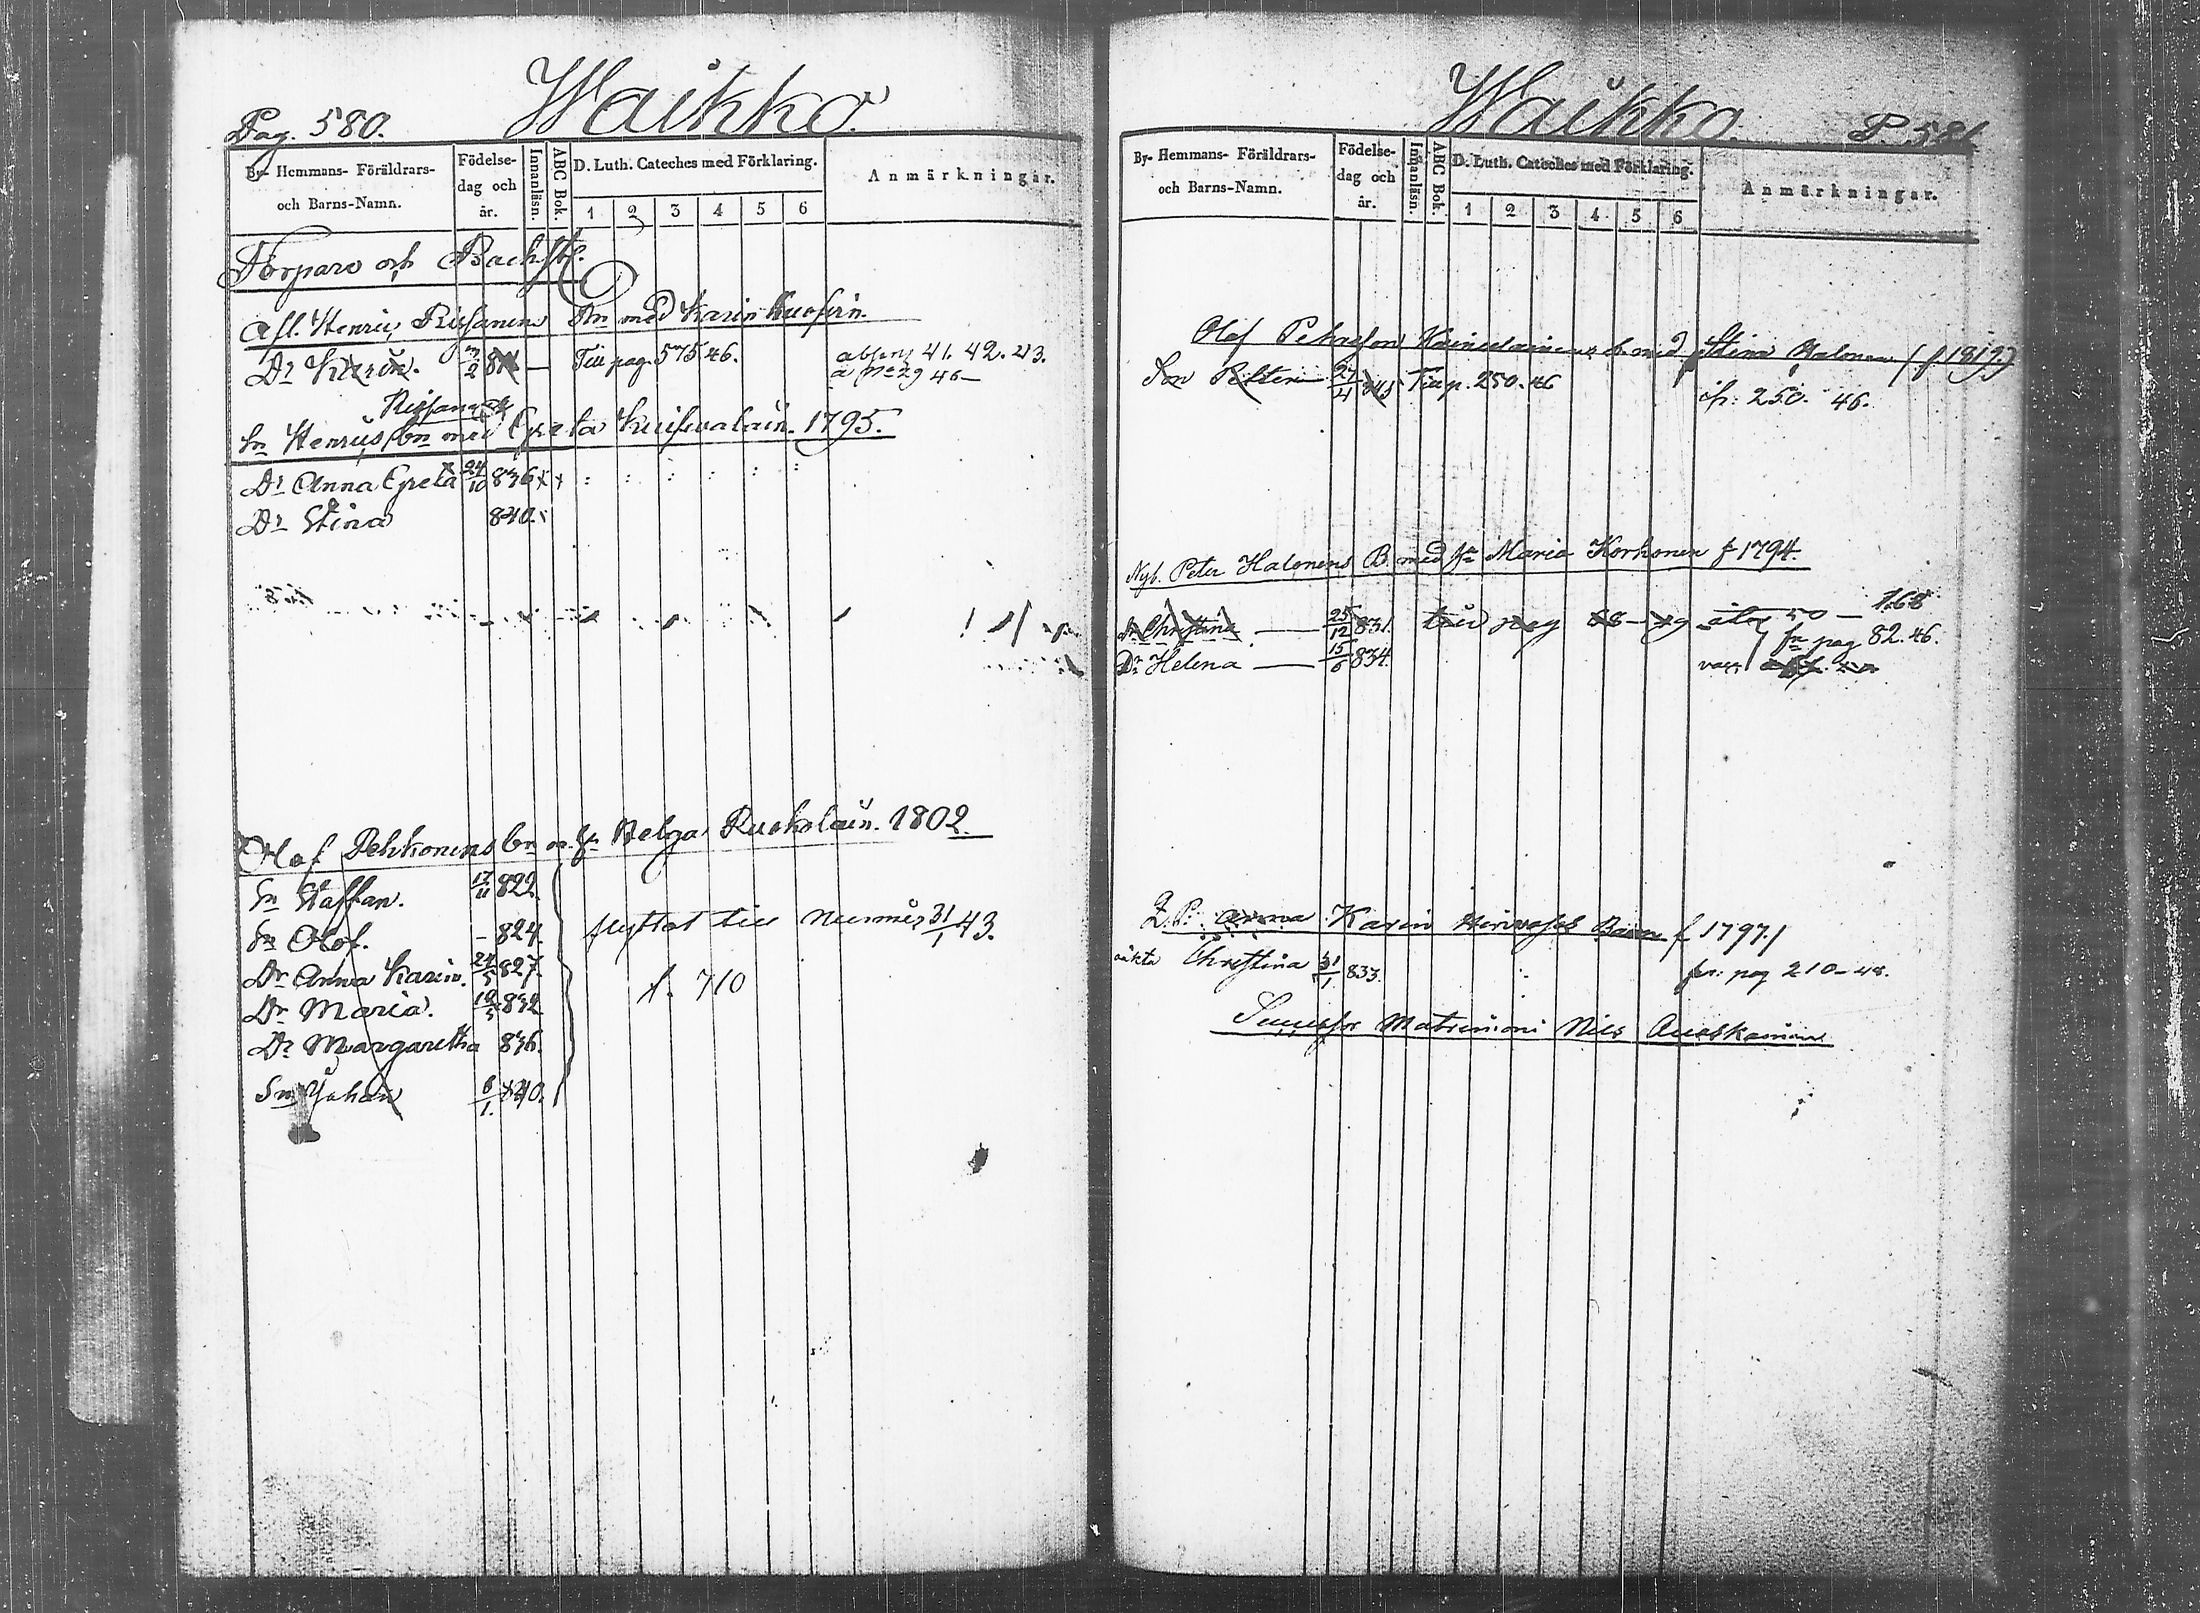 Pag. 580. Waikko.
By- Hemmans- Föräldrars- och Barns-Namn. Födelse- dag och år. Innanläsn. ABC Bok. D. Luth. Cateches med Förklaring. 1 2 3 4 5 6 Anmärkningar.
Torpare och Backst.
Afl. Henric Rissanens Bn med Karin
Dr Karin. Till pag. 575 46. absens 41. 42. 43.
46 —
Rissanens
Sn Henrics bn med Greta 1795.
Dr Anna Greta 24/10 836 x x : : : : : :
Dr Stina 840.
Olof Pehkonens bn m. h. Helga Ruokolain. 1802.
Sn Staffan. 17/11 822.
Sn Olof. - 824.
flyttat till Nurmis 31/1 43.
Dr Anna Karin. 24/5 827.
f. 710
Dr Maria. 10/5 832
Dr Margaretha 836.
Sn Johan 6/1. 840.
Waikko P. 581
By- Hemmans- Föräldrars- och Barns-Namn. Födelse- dag och år. Innanläsn. ABC Bok. D. Luth. Cateches med Förklaring. 1 2 3 4 5 6 Anmärkningar.
Olof Kainulainens b. med Stina Halonen (f 1819.)
Son Petter 27/4 845 Till p. 250. 46
p. 250. 46.
Nyb. Peter Halonens B. med hu Maria Korhonen f 1794.
Dr Christina — 25/12 831. 50 — 168
fr pag 82. 46.
Dr Helena — 15/6 834.
Karin Hirvoses Barn f 1797./
oäkta Christina 31/1 833. fr: pag 210–48.
Matrimoni Nils